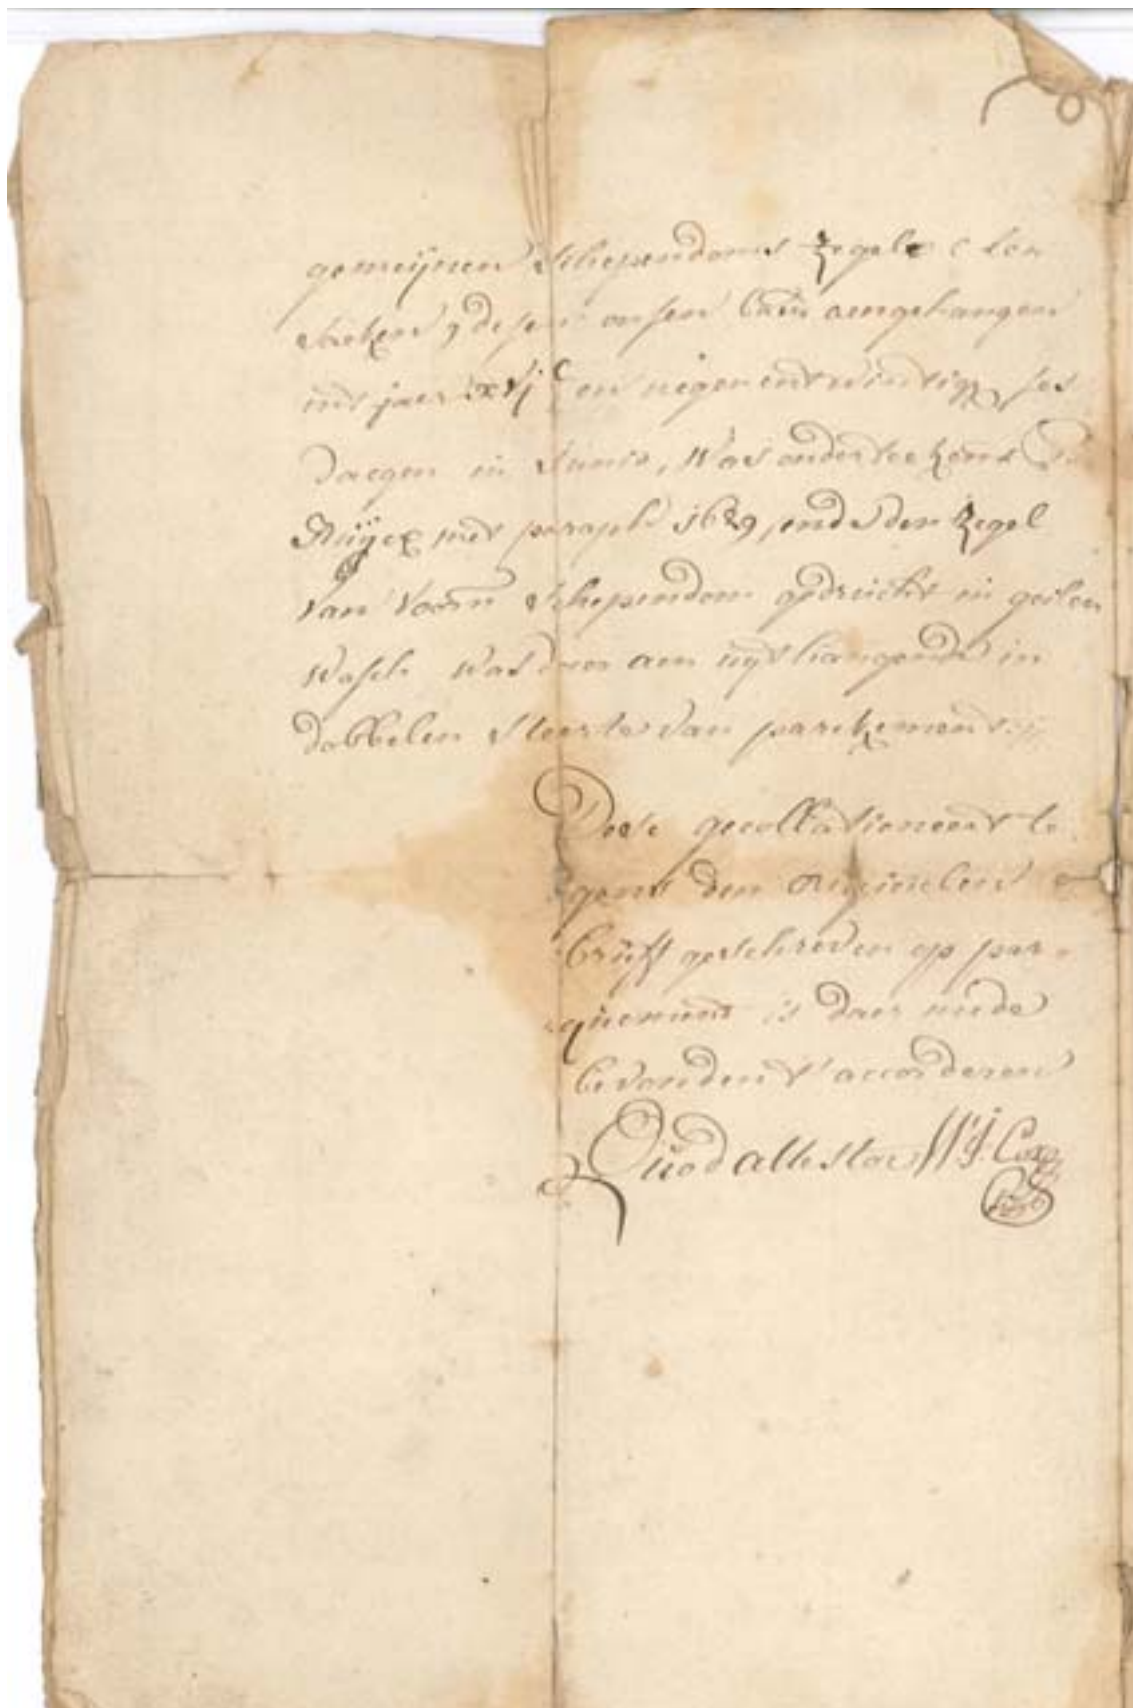 gemeijnen schependoms zegele ten
saeken desen onsen aengehangen
int jaer xvj^c en negenentwintigh, ses
daegen in Junio, was onderteekent
Ruijex met paraph 1629, ende den zegel
van voorn schependom gedruckt in geelen
wassch was daer aen uijthangende in
dobbelen steerte van parckement
Dese gecollationeert te
gens den originelen
brieff geschreven op par-
quement is daer mede
bevonden t'accorderen
Quod attestor